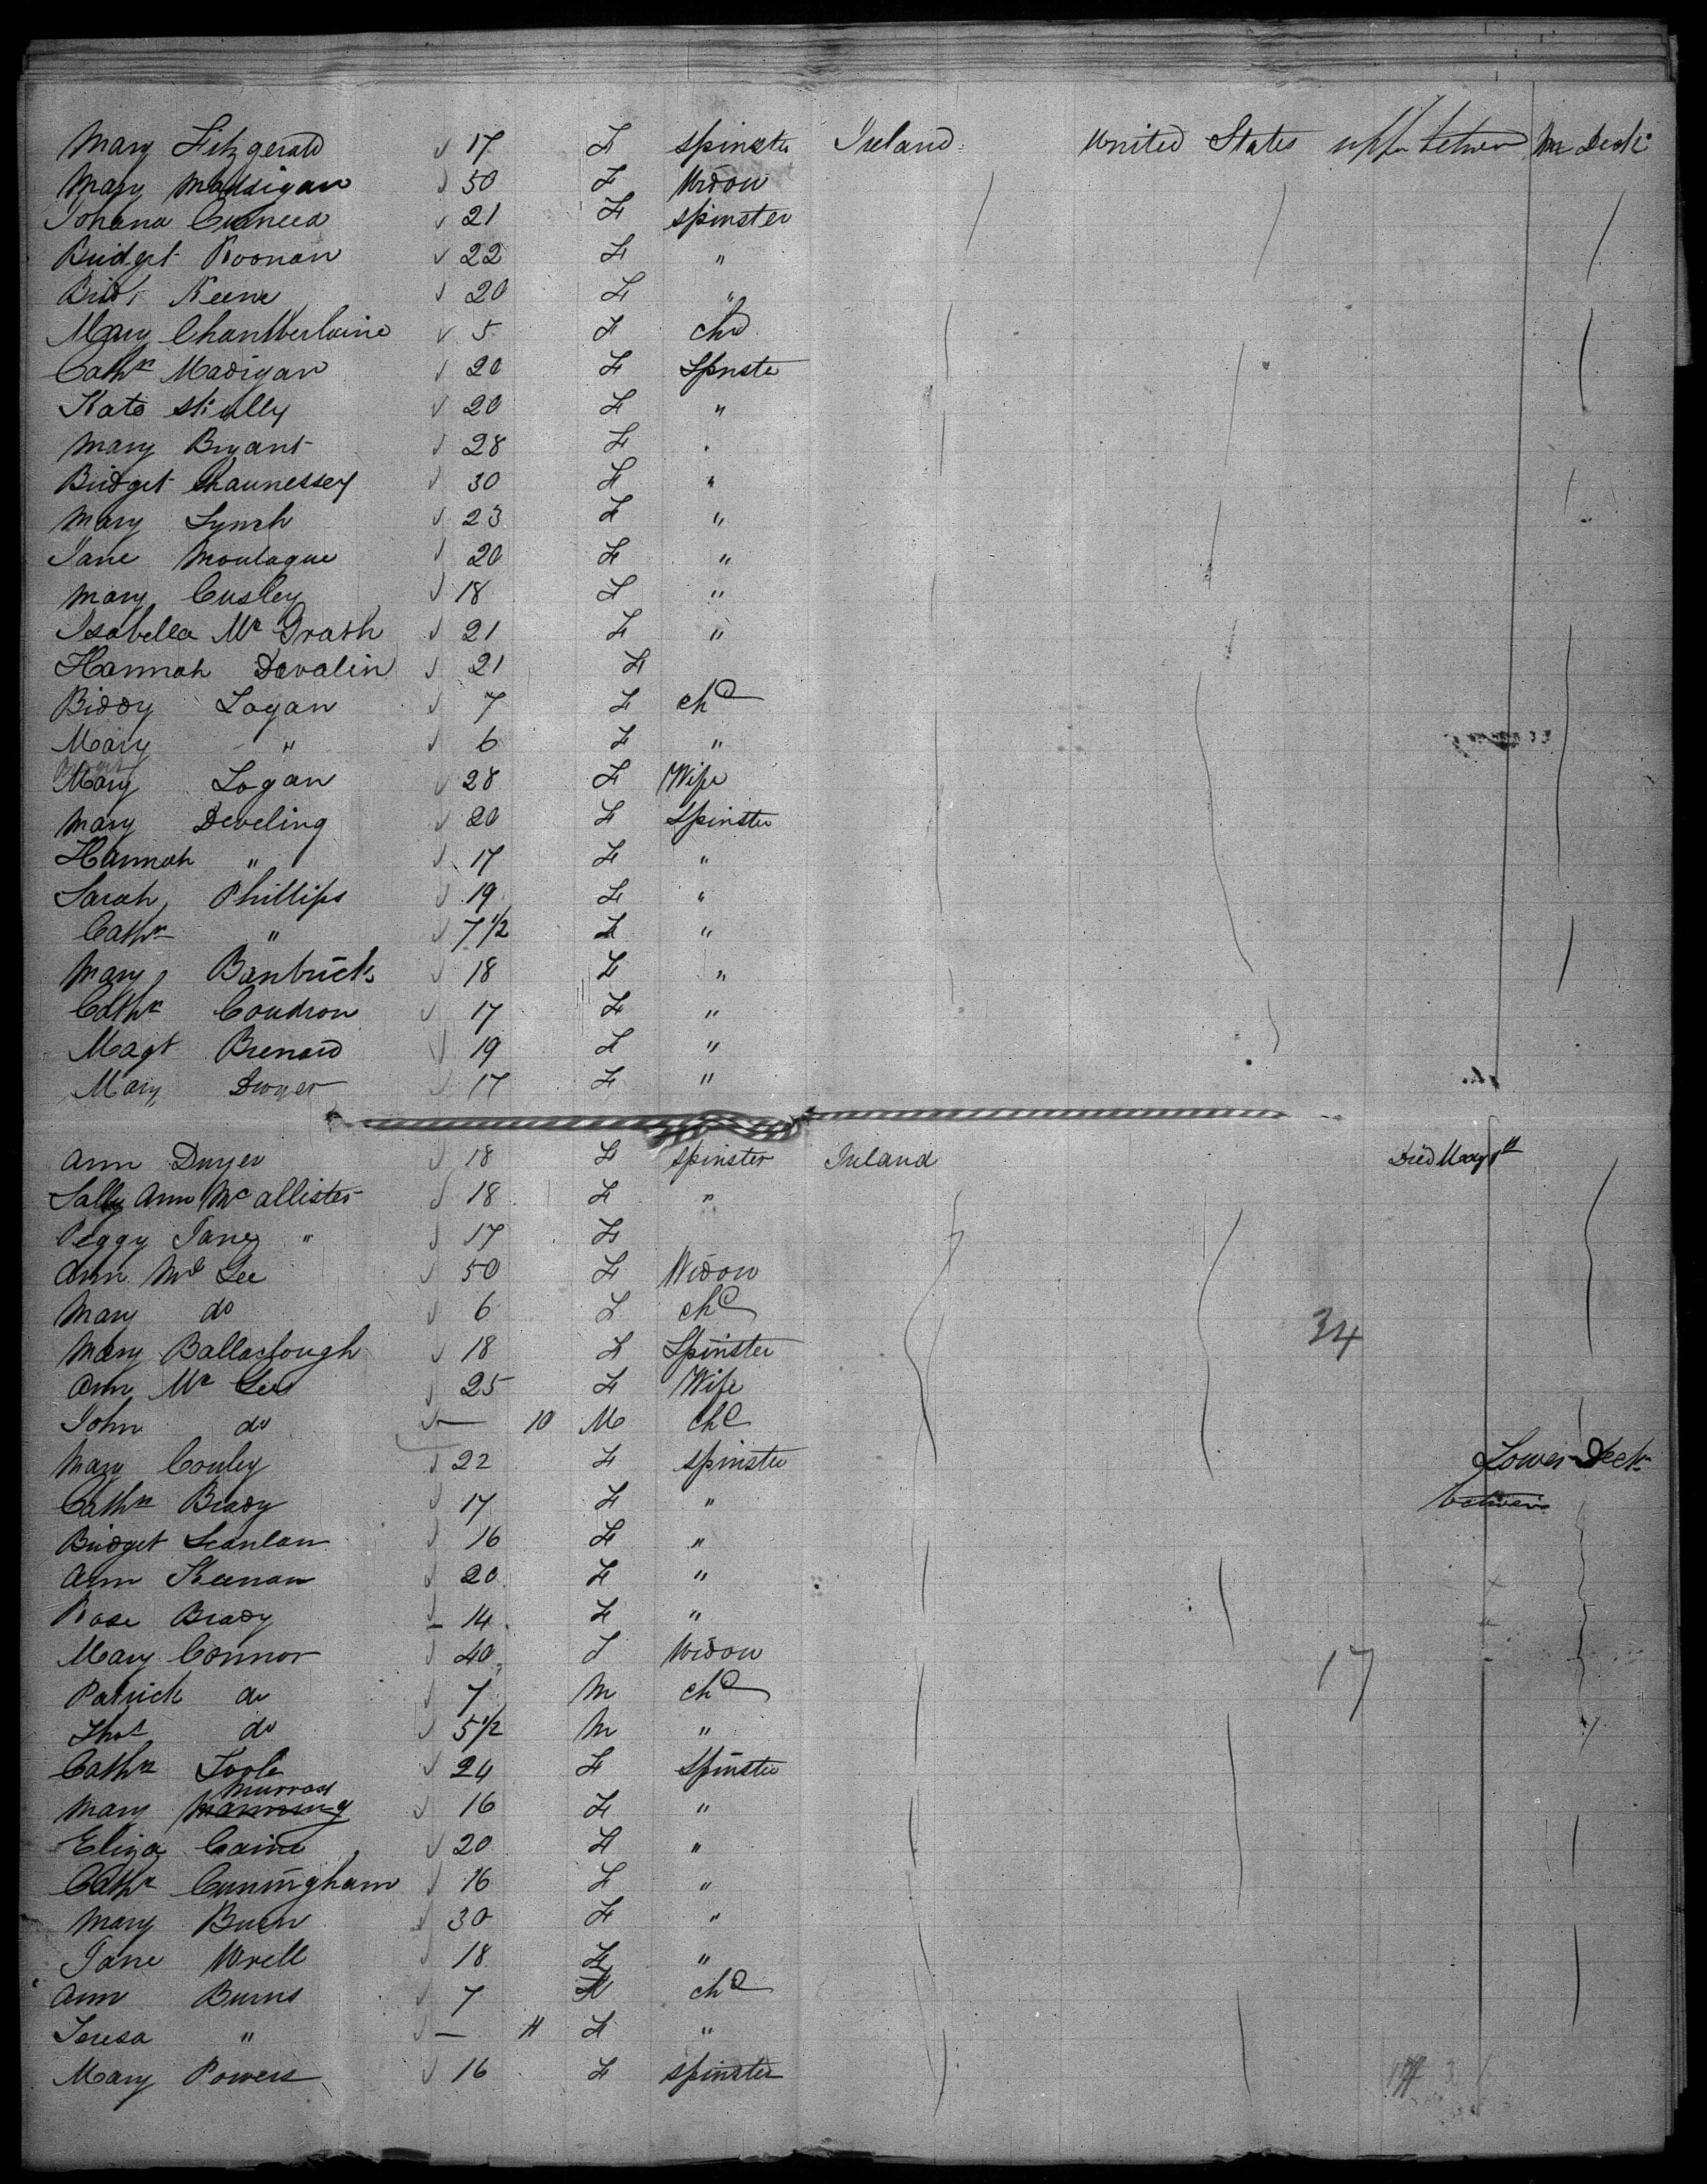 Mary Fitzgerald 17 F spinster Ireland United States upper between Deck
Mary Maddigan 50 F Widow
Johana 21 F spinster
Bridget Noonan 22 F "
Bridt Keene 20 F "
Mary Chamberlaine 5 F chd
Cathn Madigan 20 F Spnste
Kate Skully 20 F "
Mary Bryant 28 F "
Bridget Shaunessey 30 F "
Mary Lynch 23 F "
Jane Montague 20 F "
Mary Cusley 18 F "
Isabella Mc Grath 21 F "
Hannah Devalin 21 F
Biddy Logan 7 F chd
Mary " 6 F "
Mary Logan 28 F Wife
Mary Develing 20 F Spinster
Hannah " 17 F "
Sarah Phillips 19 F "
Cathn " 7 1/2 F "
Mary Bantrick 18 F "
Cathn Coudron 17 F "
Magt Brenard 19 F "
Mary Dwyer 17 F "
Ann Dwyer 18 F spinster Ireland Died May
Sally Ann Mc allister 18 F "
Peggy Jane " 17 F
Ann Mc Gee 50 F Widow
Mary do 6 F chd
Mary Ballaslough 18 F Spinster 34
Ann Mc Gee 25 F Wife
John do — 10 M chd
Mary Conley 22 F spinster Lower Deck
Cathn Brady 17 F " between
Bridget Scanlan 16 F "
Ann Keenan 20 F "
Rose Brady 14 F "
Mary Connor 40 F Widow 17
Patrick do 7 M chd
Thos do 5 1/2 M "
Cathn Toole 24 F Spinster
Mary Manning Murray 16 F "
Eliza Caine 20 F "
Cathn Cuningham 16 F "
Mary Buen 30 F "
Jane Wrell 18 F "
Ann Burns 7 F chd
Teresa " — 11 F "
Mary Powers 16 F spinster